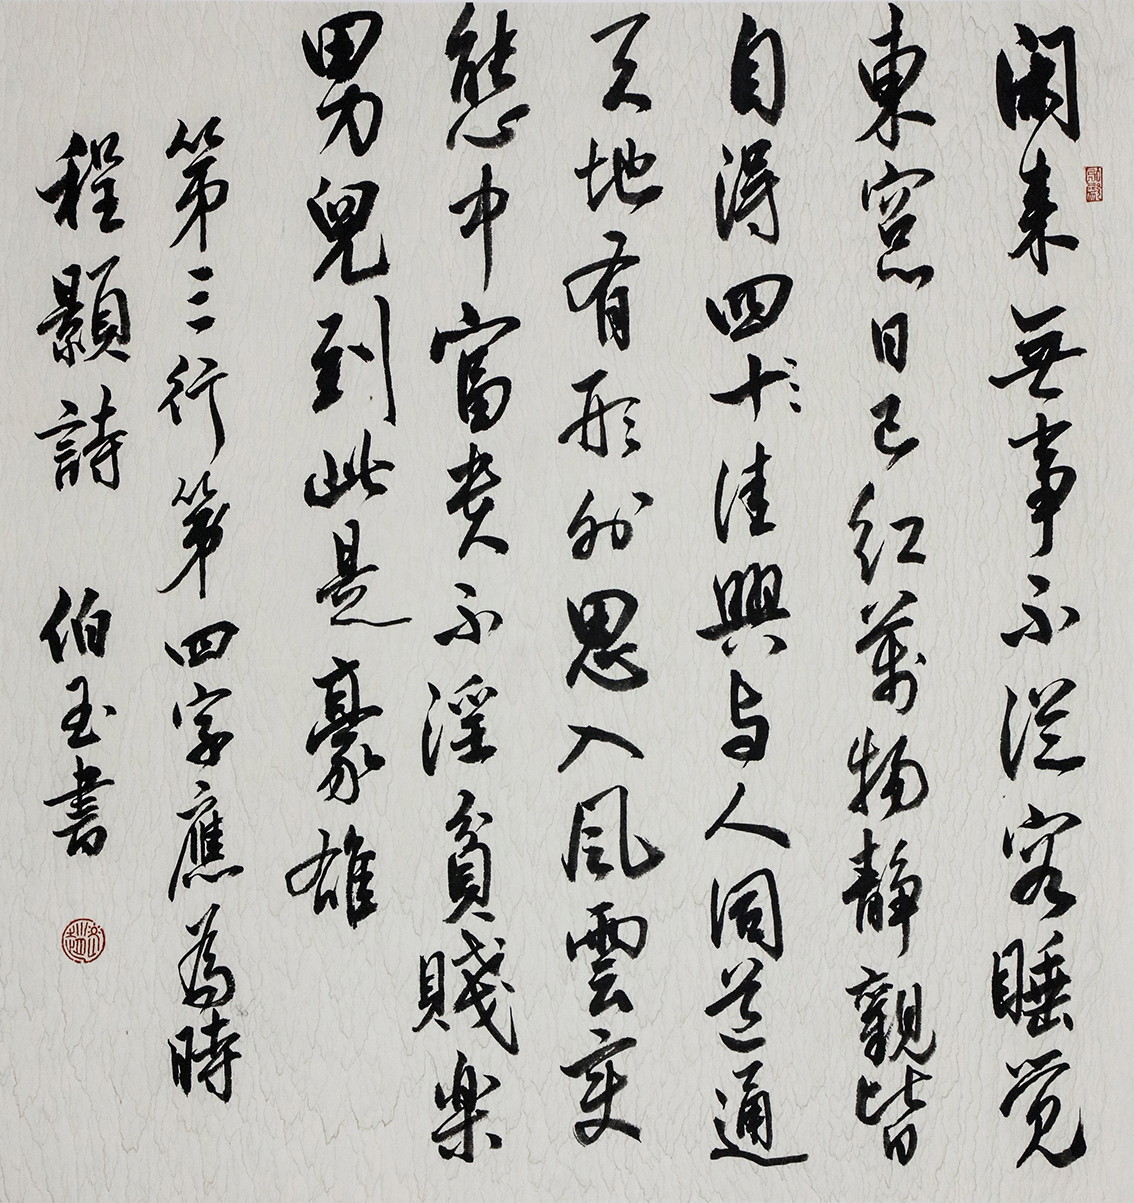 閑来無事不從容睡覺
東窓日已紅萬物靜觀皆
自得四十佳興与人同道通
天地有形外思入風雲變
態中富貴不淫貧賤楽
男兒到此是豪雄
第三行第四字應為時
程顥詩 伯玉書